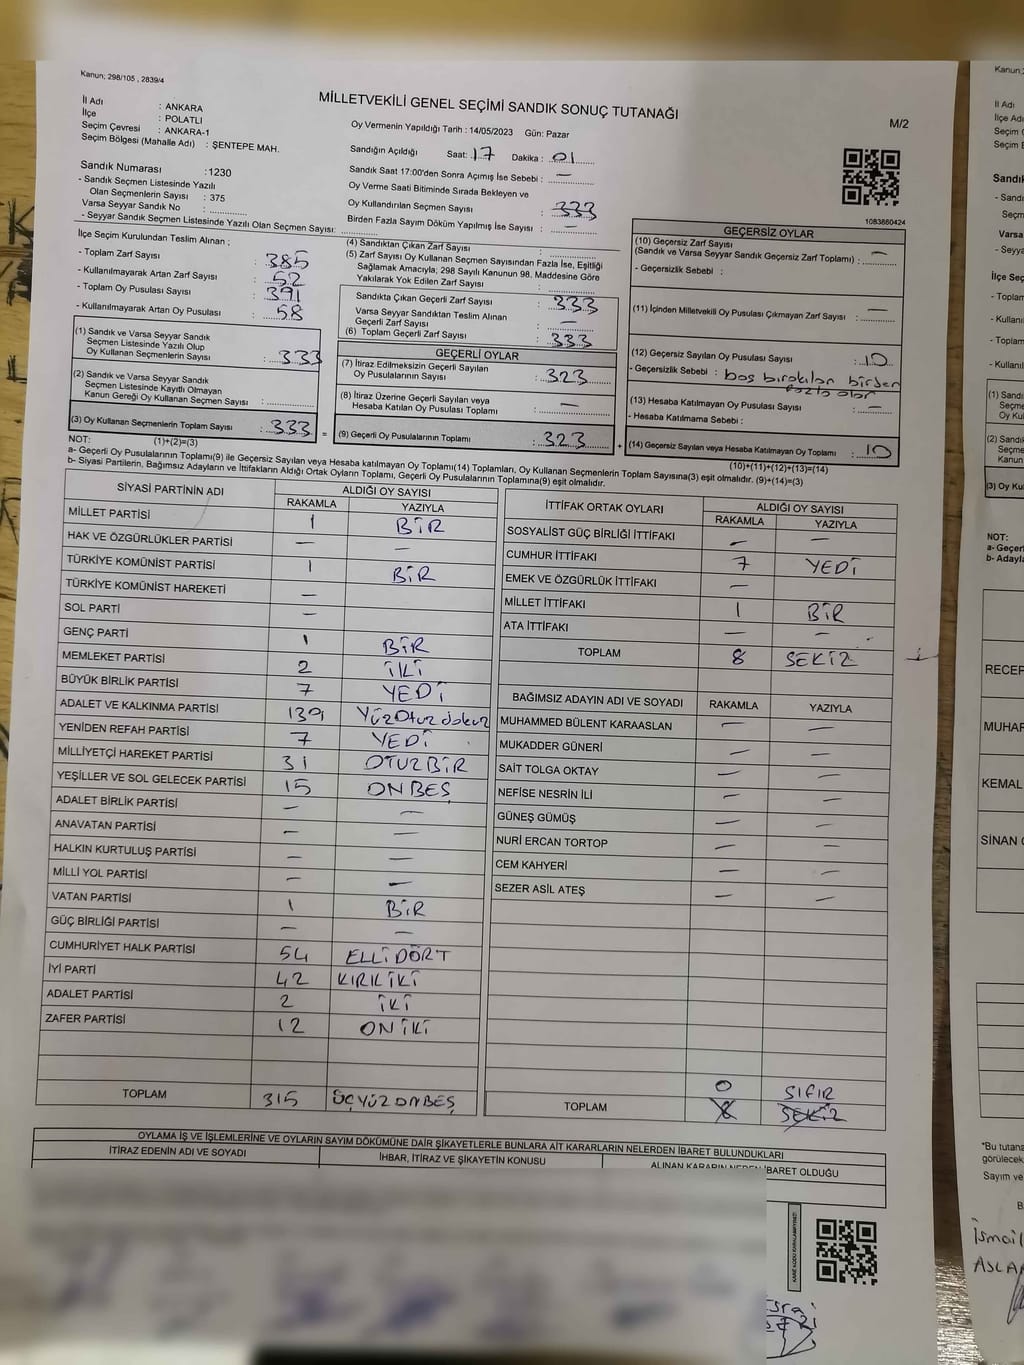 Kanun; 298/105 , 2839/4
MİLLETVEKİLİ GENEL SEÇİMİ SANDIK SONUÇ TUTANAĞI
M/2
İl Adı : ANKARA
İlçe : POLATLI
Seçim Çevresi : ANKARA-1
Seçim Bölgesi (Mahalle Adı) : ŞENTEPE MAH.
Oy Vermenin Yapıldığı Tarih : 14/05/2023 Gün: Pazar
Sandığın Açıldığı Saat: 17 Dakika : 01
Sandık Saat 17:00'den Sonra Açımış İse Sebebi : —
Oy Verme Saati Bitiminde Sırada Bekleyen ve
Oy Kullandırılan Seçmen Sayısı : 333
Birden Fazla Sayım Döküm Yapılmış İse Sayısı : —
1083860424
Sandık Numarası :1230
- Sandık Seçmen Listesinde Yazılı
Olan Seçmenlerin Sayısı : 375
Varsa Seyyar Sandık No :
- Seyyar Sandık Seçmen Listesinde Yazılı Olan Seçmen Sayısı:
İlçe Seçim Kurulundan Teslim Alınan ;
- Toplam Zarf Sayısı : 385
- Kullanılmayarak Artan Zarf Sayısı : 52
- Toplam Oy Pusulası Sayısı : 391
- Kullanılmayarak Artan Oy Pusulası : 58
(1) Sandık ve Varsa Seyyar Sandık
Seçmen Listesinde Yazılı Olup
Oy Kullanan Seçmenlerin Sayısı : 333
(2) Sandık ve Varsa Seyyar Sandık
Seçmen Listesinde Kayıtlı Olmayan
Kanun Gereği Oy Kullanan Seçmen Sayısı :
(3) Oy Kullanan Seçmenlerin Toplam Sayısı : 333
(4) Sandıktan Çıkan Zarf Sayısı :
(5) Zarf Sayısı Oy Kullanan Seçmen Sayısından Fazla İse, Eşitliği
Sağlamak Amacıyla; 298 Sayılı Kanunun 98. Maddesine Göre
Yakılarak Yok Edilen Zarf Sayısı :
Sandıkta Çıkan Geçerli Zarf Sayısı : 333
Varsa Seyyar Sandıktan Teslim Alınan
Geçerli Zarf Sayısı : —
(6) Toplam Geçerli Zarf Sayısı : 333
GEÇERLİ OYLAR
(7) İtiraz Edilmeksizin Geçerli Sayılan
Oy Pusulalarının Sayısı : 323
(8) İtiraz Üzerine Geçerli Sayılan veya
Hesaba Katılan Oy Pusulası Toplamı : —
= (9) Geçerli Oy Pusulalarının Toplamı : 323
GEÇERSİZ OYLAR
(10) Geçersiz Zarf Sayısı
(Sandık ve Varsa Seyyar Sandık Geçersiz Zarf Toplamı) : —
- Geçersizlik Sebebi :
(11) İçinden Milletvekili Oy Pusulası Çıkmayan Zarf Sayısı : —
(12) Geçersiz Sayılan Oy Pusulası Sayısı : 10
- Geçersizlik Sebebi : boş bırakılan birden
fazla olan
(13) Hesaba Katılmayan Oy Pusulası Sayısı : —
- Hesaba Katılmama Sebebi :
+ (14) Geçersiz Sayılan veya Hesaba Katılmayan Oy Toplamı : 10
NOT: (1)+(2)=(3) (10)+(11)+(12)+(13)=(14)
a- Geçerli Oy Pusulaları Toplamı(9) ile Geçersiz Sayılan veya Hesaba katılmayan Oy Toplamı(14) Toplamları, Oy Kullanan Seçmenlerin Toplam Sayısına(3) eşit olmalıdır. (9)+(14)=(3)
b- Siyasi Partilerin, Bağımsız Adayların ve İttifakların Aldığı Ortak Oyların Toplamı, Geçerli Oy Pusulalarının Toplamına(9) eşit olmalıdır.
SİYASİ PARTİNİN ADI ALDIĞI OY SAYISI
RAKAMLA YAZIYLA
MİLLET PARTİSİ 1 BİR
HAK VE ÖZGÜRLÜKLER PARTİSİ — —
TÜRKİYE KOMÜNİST PARTİSİ 1 BİR
TÜRKİYE KOMÜNİST HAREKETİ —
SOL PARTİ —
GENÇ PARTİ 1 BİR
MEMLEKET PARTİSİ 2 İKİ
BÜYÜK BİRLİK PARTİSİ 7 YEDİ
ADALET VE KALKINMA PARTİSİ 139 YüzOtuzdokuz
YENİDEN REFAH PARTİSİ 7 YEDİ
MİLLİYETÇİ HAREKET PARTİSİ 31 OTUZBİR
YEŞİLLER VE SOL GELECEK PARTİSİ 15 ONBEŞ
ADALET BİRLİK PARTİSİ — —
ANAVATAN PARTİSİ — —
HALKIN KURTULUŞ PARTİSİ — —
MİLLİ YOL PARTİSİ — —
VATAN PARTİSİ 1 BİR
GÜÇ BİRLİĞİ PARTİSİ — —
CUMHURİYET HALK PARTİSİ 54 ELLİDÖRT
İYİ PARTİ 42 KIRKİKİ
ADALET PARTİSİ 2 İKİ
ZAFER PARTİSİ 12 ONİKİ
TOPLAM 315 ÜÇYÜZONBEŞ
İTTİFAK ORTAK OYLARI ALDIĞI OY SAYISI
RAKAMLA YAZIYLA
SOSYALİST GÜÇ BİRLİĞİ İTTİFAKI — —
CUMHUR İTTİFAKI 7 YEDİ
EMEK VE ÖZGÜRLÜK İTTİFAKI —
MİLLET İTTİFAKI 1 BİR
ATA İTTİFAKI — —
TOPLAM 8 SEKİZ
BAĞIMSIZ ADAYIN ADI VE SOYADI RAKAMLA YAZIYLA
MUHAMMED BÜLENT KARAASLAN — —
MUKADDER GÜNERİ — —
SAİT TOLGA OKTAY — —
NEFİSE NESRİN İLİ — —
GÜNEŞ GÜMÜŞ — —
NURİ ERCAN TORTOP — —
CEM KAHYERİ — —
SEZER ASİL ATEŞ — —
0 SIFIR
TOPLAM 8 SEKİZ
OYLAMA İŞ VE İŞLEMLERİNE VE OYLARIN SAYIM DÖKÜMÜNE DAİR ŞİKAYETLERLE BUNLARA AİT KARARLARIN NELERDEN İBARET BULUNDUKLARI
İTİRAZ EDENİN ADI VE SOYADI İHBAR, İTİRAZ VE ŞİKAYETİN KONUSU ALINAN KARARIN NEDEN İBARET OLDUĞU
KARE KODU KARALAMAYINIZ!
Kanun;
İl Adı
İlçe Adı
Seçim
Seçim B
Sandık
- Sandı
Seçm
Varsa
- Seyya
İlçe Seç
- Toplam
- Kullanıl
- Toplam
- Kullanıl
(1) Sandı
Seçme
Oy Ku
(2) Sandık
Seçme
Kanun
(3) Oy Ku
NOT:
a- Geçerl
b- Adayla
RECEP
MUHAR
KEMAL
SİNAN O
*Bu tutana
görülecek
Sayım ve
İsmail
ASLA